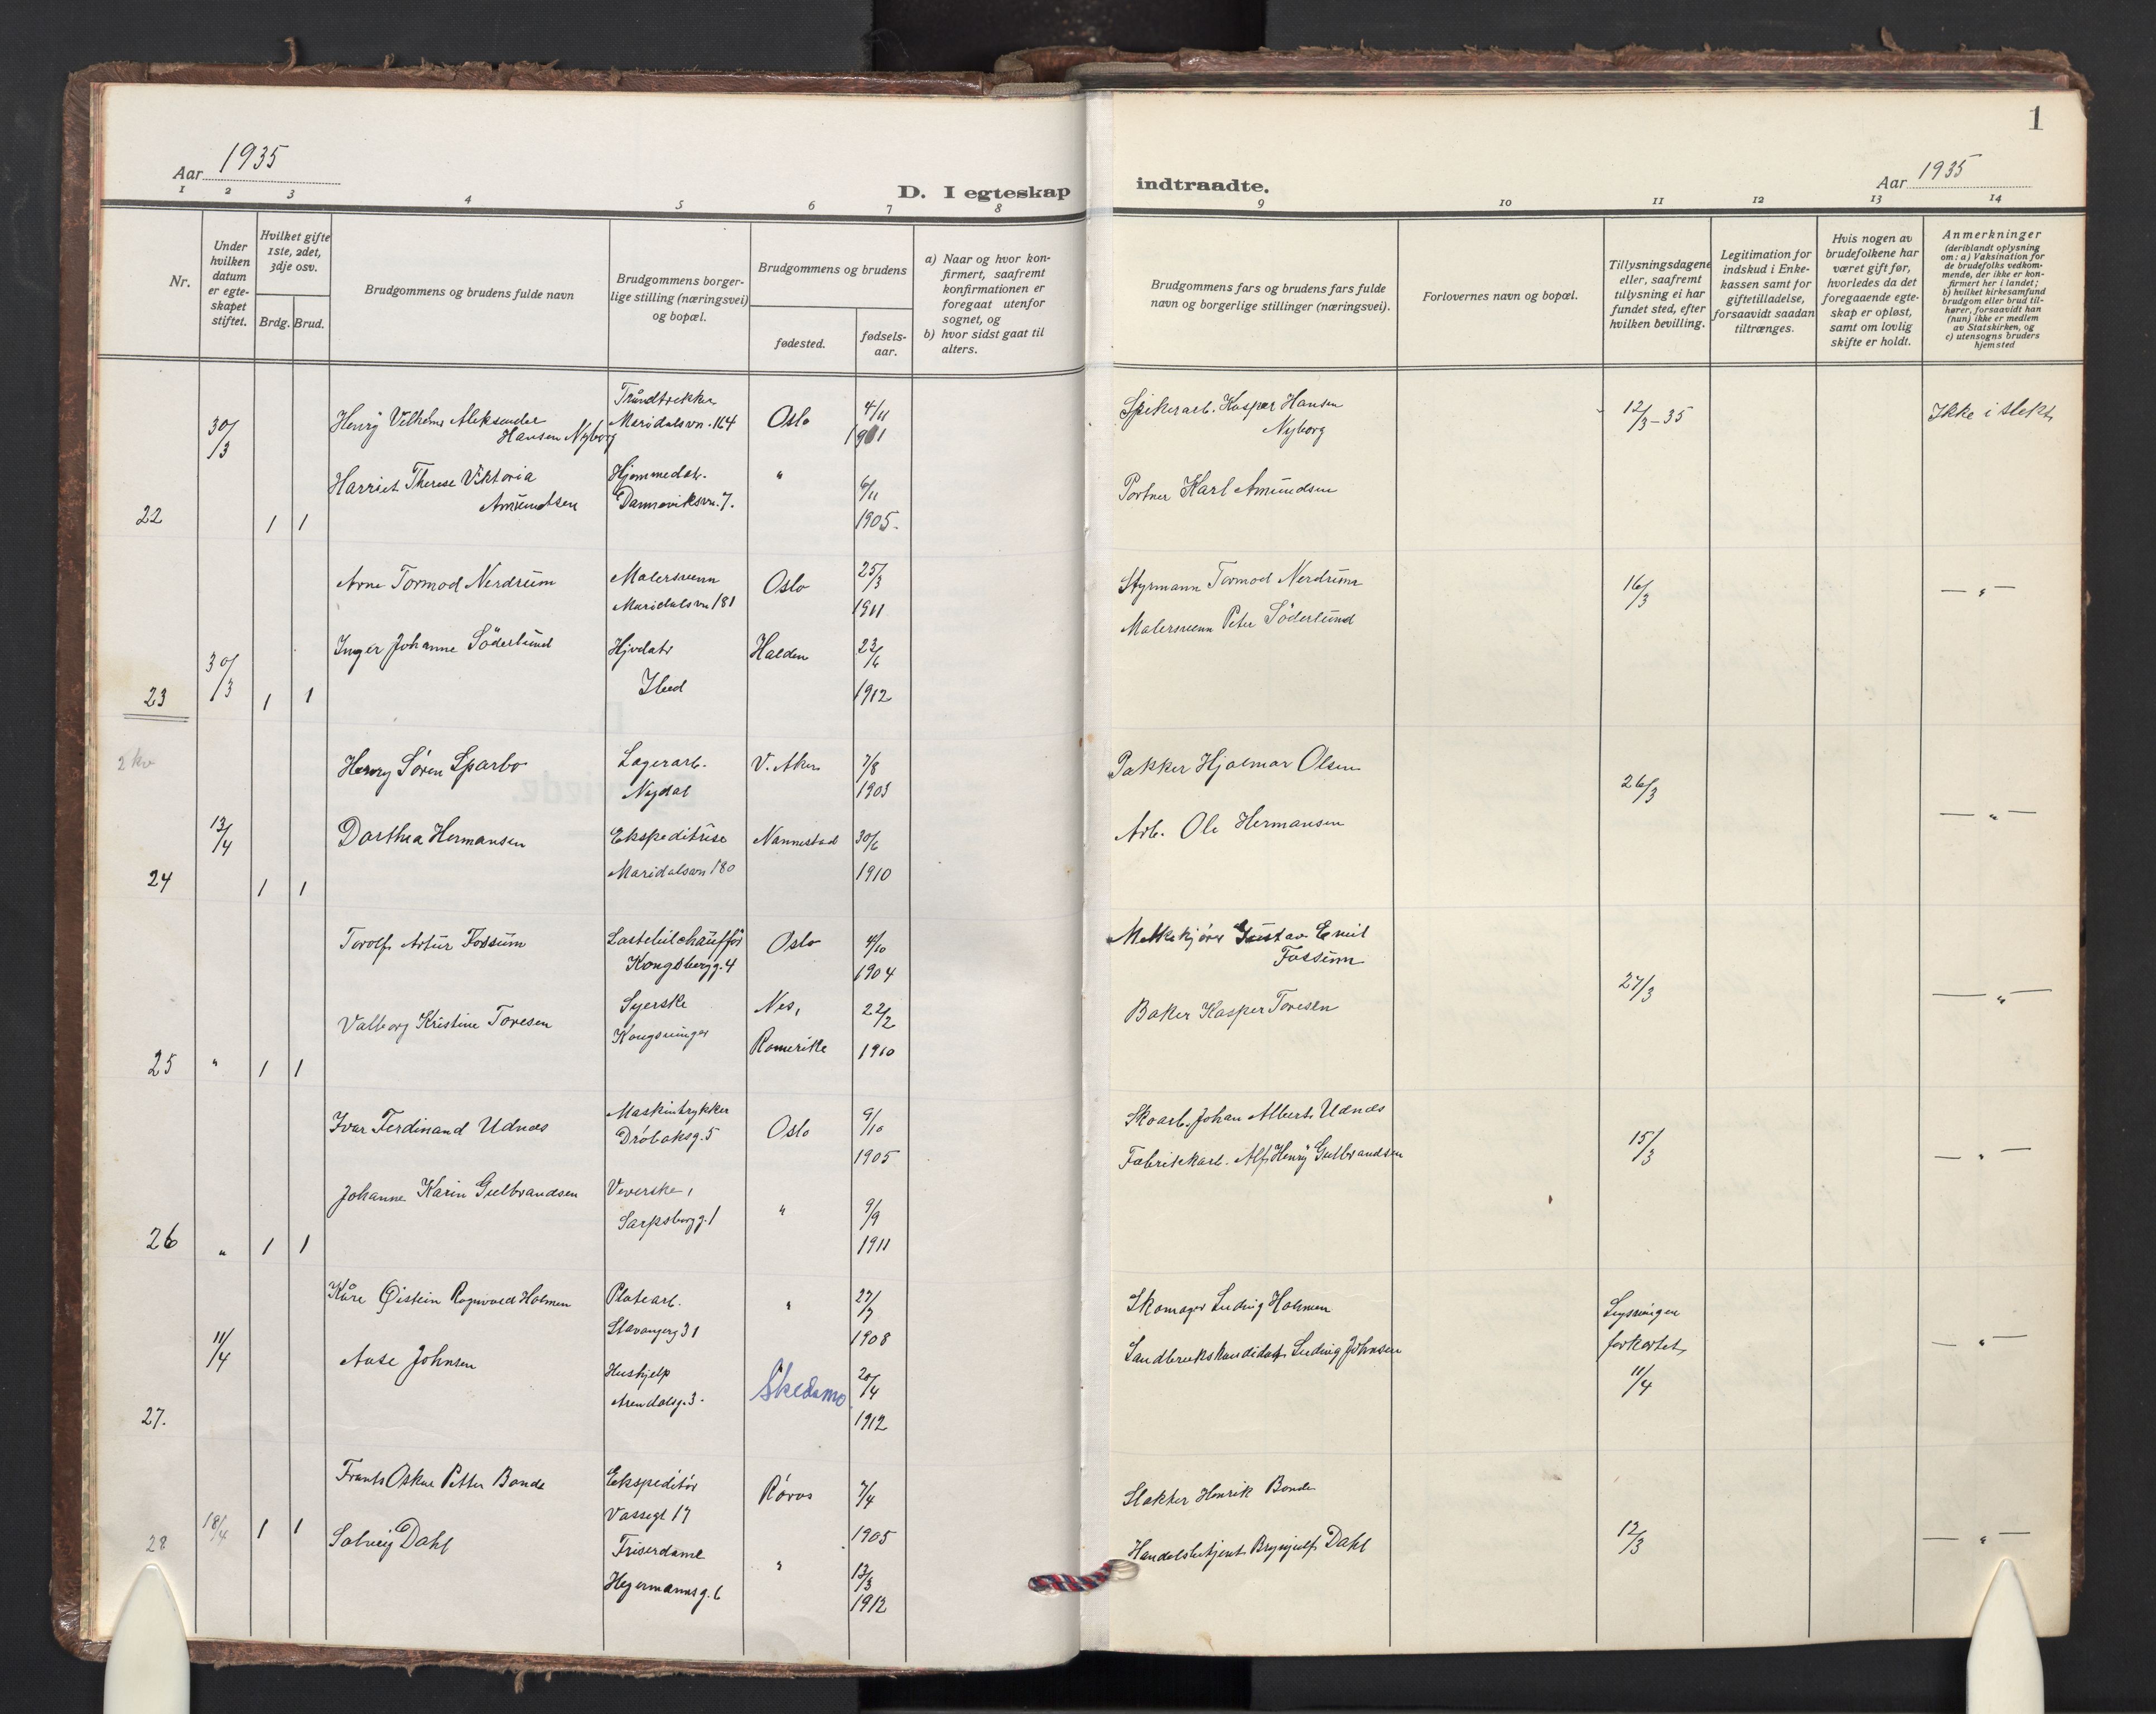 1
Aar 1935
Aar 1935
D. I egteskap indtraadte.
1 2 3 4 5 6 7 8 9 10 11 12 13 14
Nr.
Under hvilken datum er egteskapet stiftet.
Hvilket gifte 1ste, 2det, 3dje osv.
Brdg. Brud.
Brudgommens og brudens fulde navn
Brudgommens borgerlige stilling (næringsvei) og bopæl.
Brudgommens og brudens
fødested.
fødselsaar.
a) Naar og hvor konfirmert, saafremt konfirmationen er foregaat utenfor sognet, og
b) hvor sidst gaat til alters.
Brudgommens fars og brudens fars fulde navn og borgerlige stillinger (næringsvei).
Forlovernes navn og bopæl.
Tillysningsdagene eller, saafremt tillysning ei har fundet sted, efter hvilken bevilling.
Legitimation for indskud i Enkekassen samt for giftetilladelse, forsaavidt saadan tiltrænges.
Hvis nogen av brudefolkene har været gift før, hvorledes da det foregaaende egteskap er opløst, samt om lovlig skifte er holdt.
Anmerkninger (deriblandt oplysning om: a) Vaksination for de brudefolks vedkommende, der ikke er konfirmert her i landet; b) hvilket kirkesamfund brudgom eller brud tilhører, forsaavidt han (hun) ikke er medlem av Statskirken, og c) utensogns bruders hjemsted
22 30/3 1 1
Henry Vilhelm Aleksander Hansen Nyborg
Trådtrekker Maridalsvn. 164
Oslo 4/11 1901
Spikerarb. Kasper Hansen Nyborg
12/3-35
Ikke i slekt
Harriet Therese Viktoria Amundsen
Hjemmedat. Danneviksvn. 7.
" 6/11 1905.
Portner Karl Amundsen
23 30/3 1 1
Arne Tormod Nerdrum
Malersvenn Maridalsvn 181
Oslo 25/3 1911
Styrmann Tormod Nerdrum
16/3
— " —
Inger Johanne Söderlund
Hjvdatr Ibid
Halden 23/6 1912
Malersvenn Peter Söderlund
2 kv
24 13/4 1 1
Henry Søren Sparbo
Lagerarb. Nydal
V. Aker 7/8 1903
Pakker Hjalmar Olsen
26/3
— " —
Dorthea Hermansen
Ekspeditrise Maridalsvn 180
Nannestad 30/6 1910
Arb. Ole Hermansen
25 " 1 1
Torolf Artur Fossum
Lastebilchauffør Kongsbergg. 4
Oslo 4/10 1904
Melkekjører Gustav Emil Fossum
27/3
— " —
Valborg Kristine Toresen
Syerske Kongsvinger
Nes, Romerike 22/2 1910
Baker Kasper Toresen
26 " 1 1
Ivar Ferdinand Udnæs
Maskintrykker Drøbaksg. 5
Oslo 9/10 1905
Skoarb. Johan Albert Udnæs
15/3
— " —
Johanne Karin Gulbrandsen
Veverske, Sarpsborgg. 1
" 9/9 1911
Fabrikkarb. Alf Henry Gulbrandsen
27. 11/4
Kåre Øistein Ragnvald Holmen
Platearb. Stavangerg 31
" 27/7 1908
Skomager Ludvig Holmen
Lysningen forkortet 11/4
— " —
Aase Johnsen
Hushjelp Arendalsg. 3.
Skedsmo 20/4 1912
Landbrukskandidat Ludvig Johnsen
28 18/4 1 1
Frants Oskar Petter Bonde
Ekspeditør Vossegt 17
Røros 7/4 1905
Slakter Henrik Bonde
12/3
— " —
Solveig Dahl
Friserdame Hegermannsg. 6
" 13/3 1912
Handelsbetjent Brynjulf Dahl